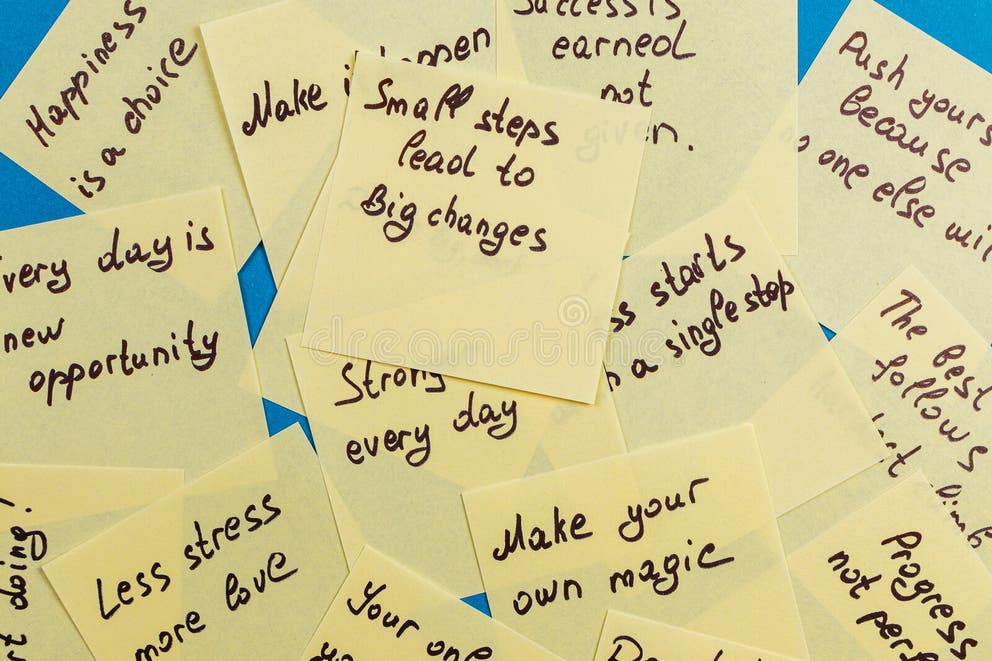 Happiness
is a choice
Make
Success is
earned
not
given.
Push yours
Because
no one else will
Small steps
lead to
Big changes
every day is
new
opportunity
starts
a single step
Strong
every day
The best
follows
Less stress
more love
Make your
own magic
Progress
not
doing!
Your one
dreamstime